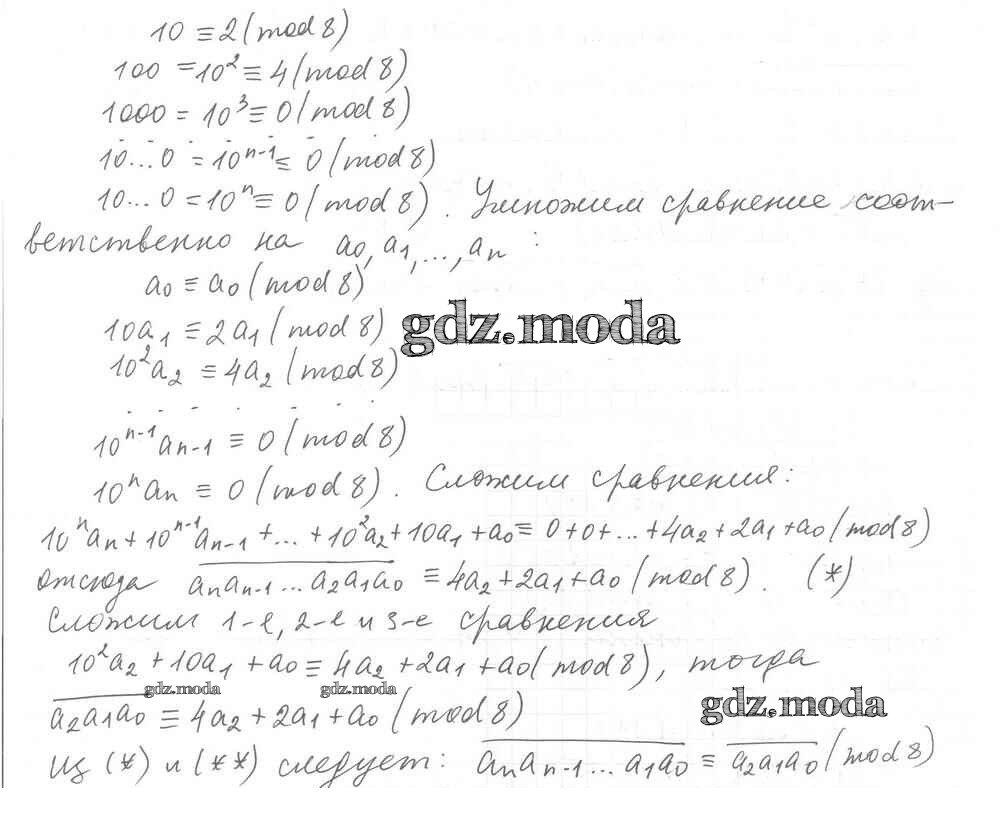 10 ≡ 2 (mod 8)
100 = 10² ≡ 4 (mod 8)
1000 = 10³ ≡ 0 (mod 8)
10...0 = 10ⁿ⁻¹ ≡ 0 (mod 8)
10...0 = 10ⁿ ≡ 0 (mod 8). Умножим сравнение соот-
ветственно на a₀, a₁, ..., aₙ:
a₀ ≡ a₀ (mod 8)
10a₁ ≡ 2a₁ (mod 8)
gdz.moda
10²a₂ ≡ 4a₂ (mod 8)
10ⁿ⁻¹aₙ₋₁ ≡ 0 (mod 8)
10ⁿaₙ ≡ 0 (mod 8). Сложим сравнения:
10ⁿaₙ + 10ⁿ⁻¹aₙ₋₁ + ... + 10²a₂ + 10a₁ + a₀ ≡ 0+0+...+4a₂+2a₁+a₀ (mod 8)
отсюда aₙaₙ₋₁...a₂a₁a₀ ≡ 4a₂+2a₁+a₀ (mod 8). (*)
Сложим 1-е, 2-е и 3-е сравнения
10²a₂ + 10a₁ + a₀ ≡ 4a₂ + 2a₁ + a₀ (mod 8), тогда
gdz.moda gdz.moda
a₂a₁a₀ ≡ 4a₂ + 2a₁ + a₀ (mod 8)
gdz.moda
Из (*) и (**) следует: aₙaₙ₋₁...a₁a₀ ≡ a₂a₁a₀ (mod 8)